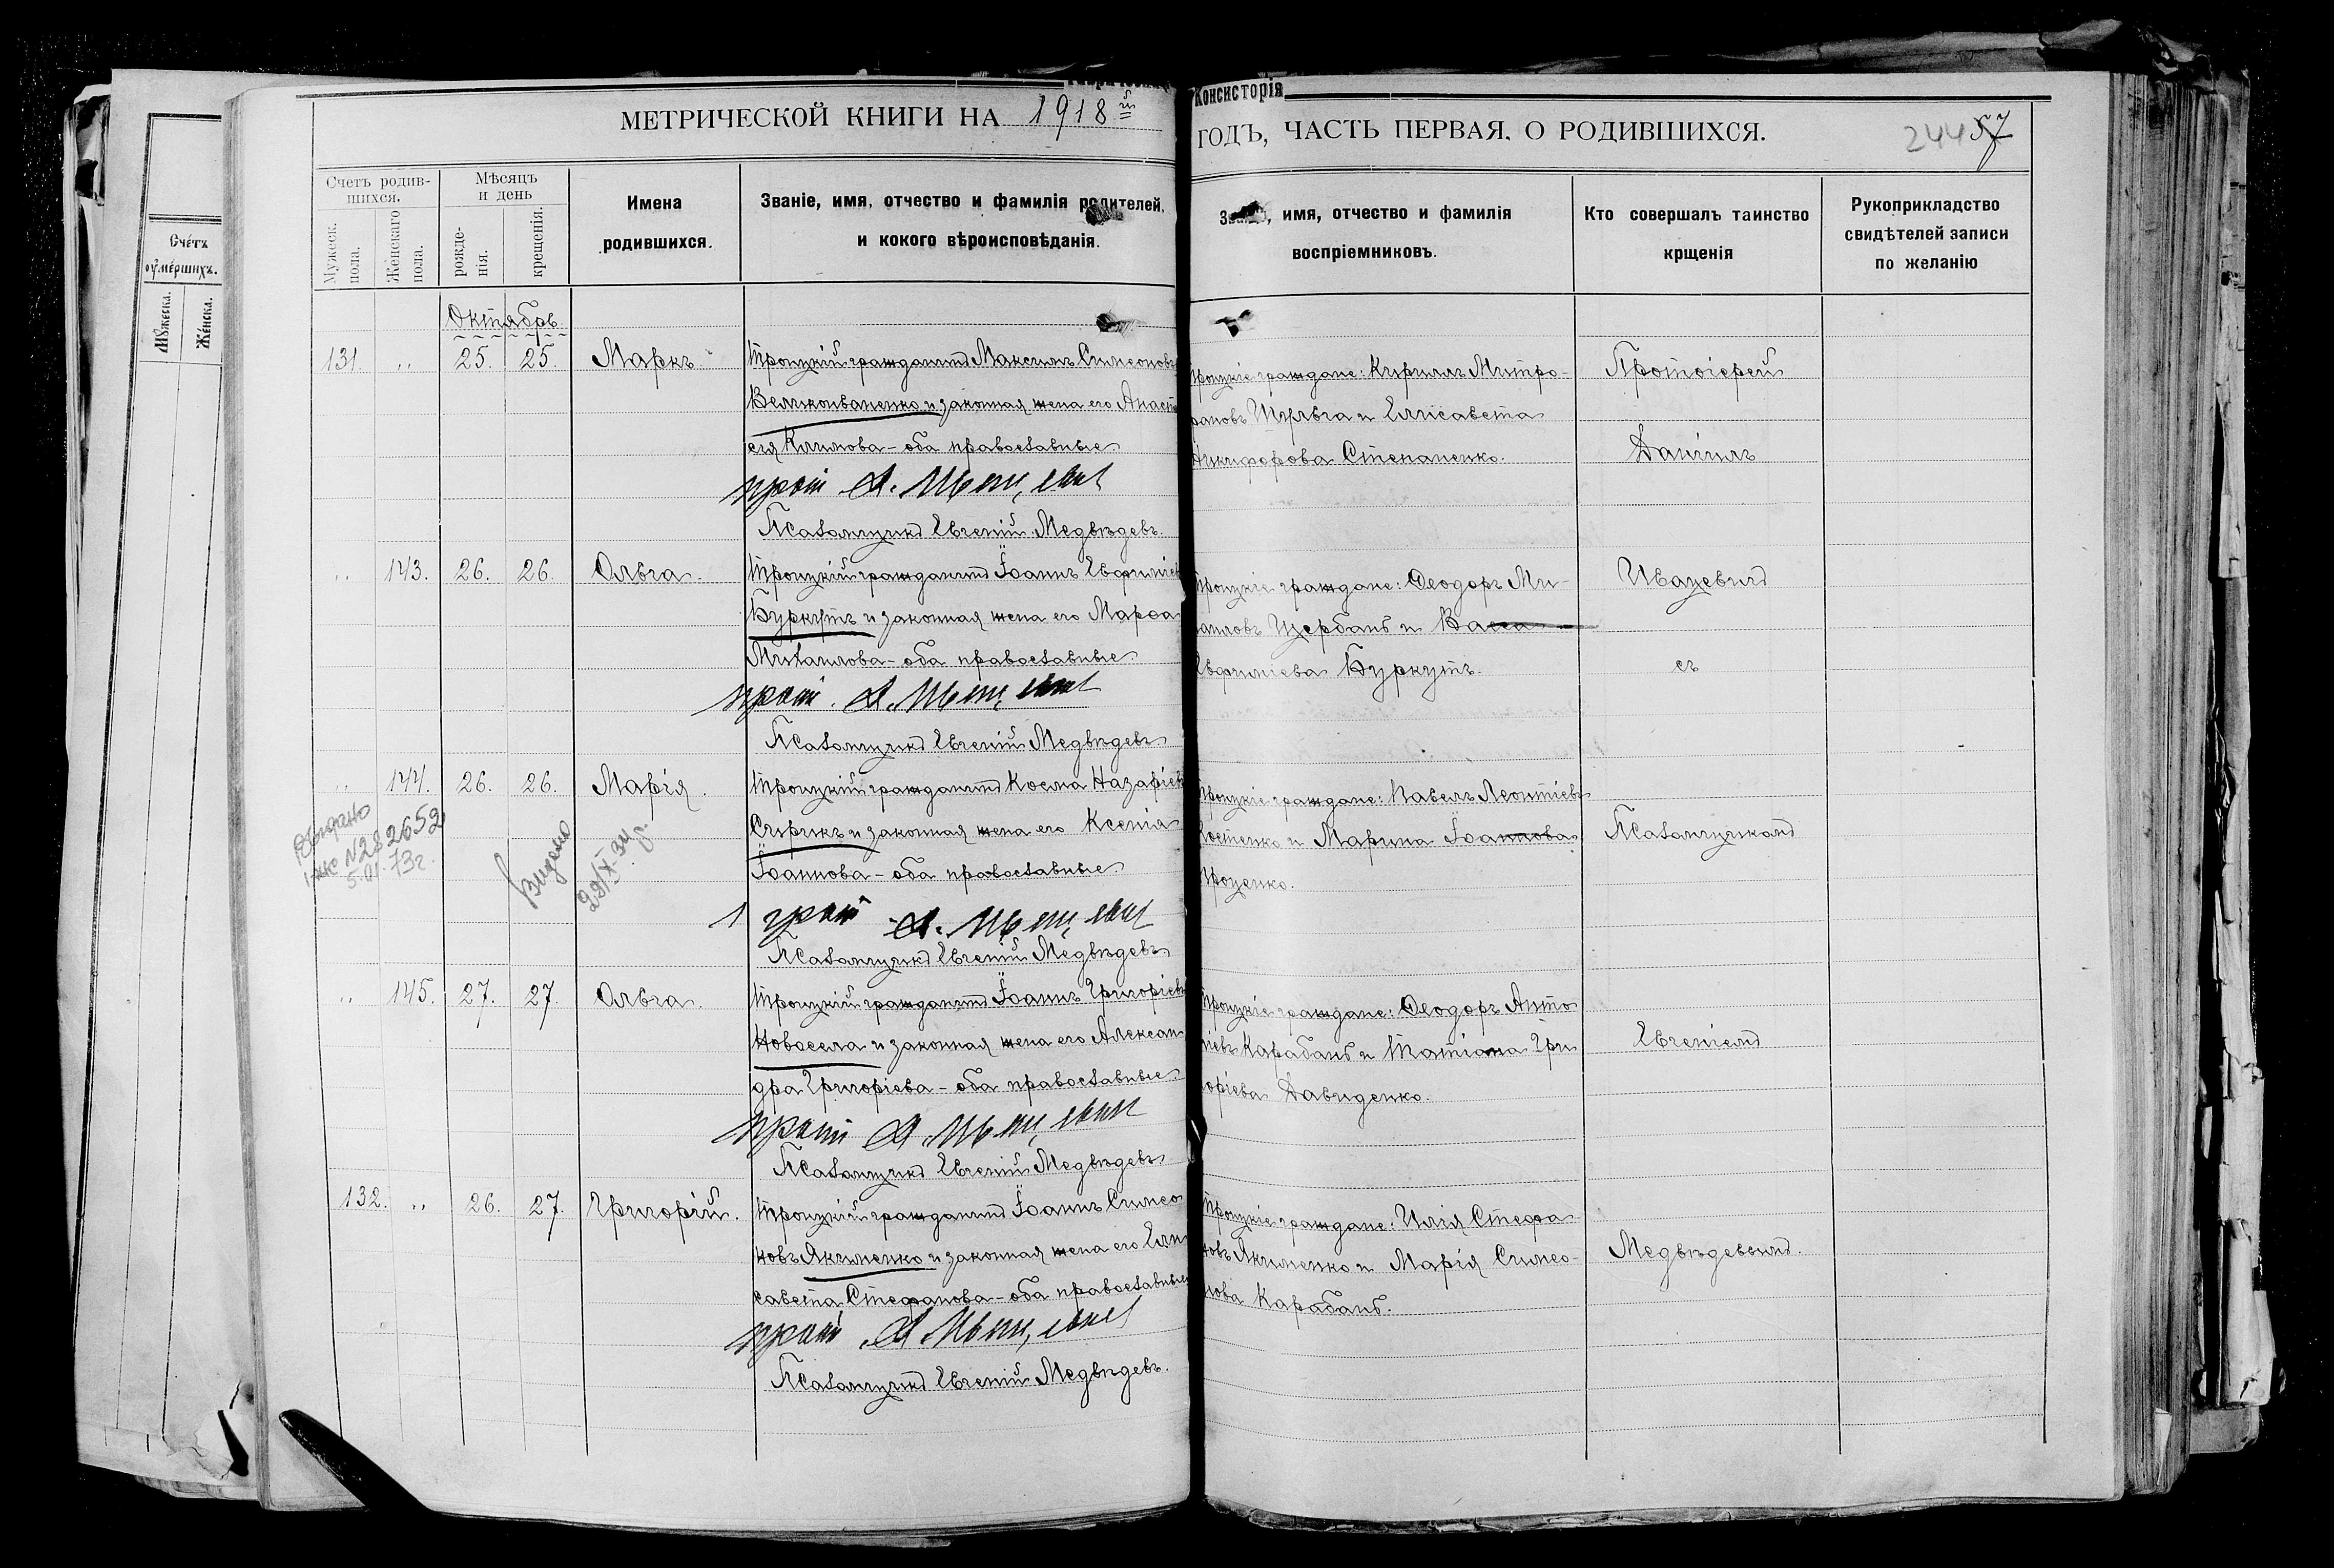 Консисторія
МЕТРИЧЕСКОЙ КНИГИ НА 1918й
ГОДЪ, ЧАСТЬ ПЕРВАЯ, О РОДИВШИХСЯ.
244 57
Счётъ
оумершихъ.
Мужеска.
Женска.
Счетъ родив-
шихся.
Мужеск.
пола.
Женскаго
пола.
Мѣсяцъ
и день
рожде-
нія.
крещенія.
Имена
родившихся.
Званіе, имя, отчество и фамилія родителей,
и кокого вѣроисповѣданія.
имя, отчество и фамилія
воспріемниковъ.
Кто совершалъ таинство
крщенія
Рукоприкладство
свидѣтелей записи
по желанію
Октябрь
131. „ 25. 25. Маркъ.
Троицкій гражданинъ Максимъ Симеоновъ
Великоиваненко и законная жена его Анаста
сія Климова - оба православные.
прот А.
Псаломщикъ Евгеній Медвѣдевъ
Троицкіе граждане: Кириллъ Митро-
фановъ Шульга и Елисавета
Никифорова Степаненко.
Протоіерей
Даніилъ
„ 143. 26. 26. Ольга.
Троицкій гражданинъ Іоаннъ Евфиміев
Буркутъ и законная жена его Марѳа
Михаилова - оба православные.
прот. А.
Псаломщикъ Евгеній Медвѣдевъ
Троицкіе граждане: Ѳеодоръ Ми-
хаиловъ Щербань и Васса
Евфиміева Буркутъ.
Иваневичъ
съ
„ 144. 26. 26. Марія.
Троицкій гражданинъ Косма Назаріев
Сирикъ и законная жена его Ксенія
Іоаннова - оба православные.
прот А.
Псаломщикъ Евгеній Медвѣдевъ
Троицкіе граждане: Павелъ Леонтіевъ
Костенко и Марина Іоаннова
Проценко.
Псаломщикомъ
Выдано
№282652
73г.
Видено
„ 145. 27. 27. Ольга.
Троицкій гражданинъ Іоаннъ Григоріевъ
Новосела и законная жена его Алексан
дра Григоріева - оба православные.
прот А.
Псаломщикъ Евгеній Медвѣдевъ
Троицкіе граждане: Ѳеодоръ Анто
ніевъ Карабань и Татіана Гри
горіева Давиденко.
Евгеніемъ
132. „ 26. 27. Григорій.
Троицкій гражданинъ Іоаннъ Симео
новъ Якименко и законная жена его Ели
савета Стефанова - оба православные
прот А.
Псаломщикъ Евгеній Медвѣдевъ.
Троицкіе граждане: Илія Стефа
новъ Якименко и Марія Симео-
нова Карабань.
Медвѣдевымъ.